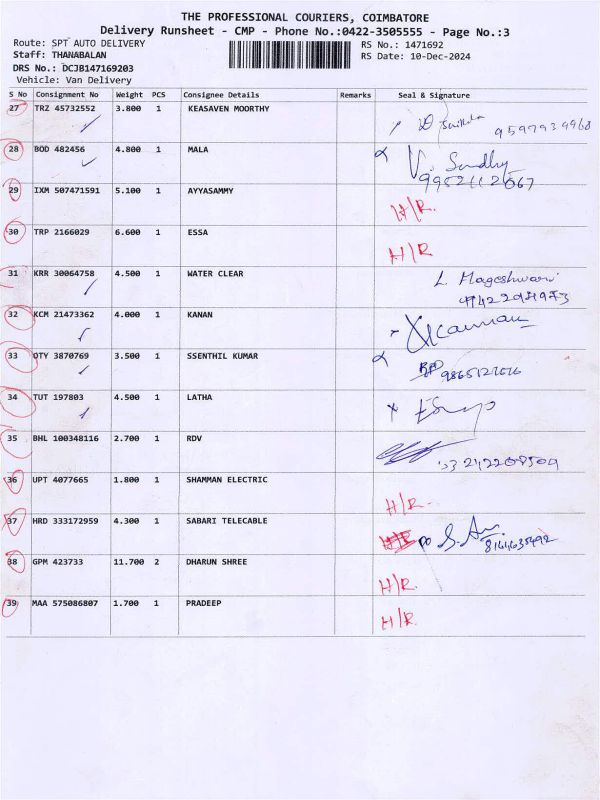 THE PROFESSIONAL COURIERS, COIMBATORE
Delivery Runsheet - CMP - Phone No.:0422-3505555 - Page No.:3
Route: SPT AUTO DELIVERY RS No.: 1471692
Staff: THANABALAN RS Date: 10-Dec-2024
DRS No.: DCJB147169203
Vehicle: Van Delivery
S No Consignment No Weight PCS Consignee Details Remarks Seal & Signature
27 TRZ 45732552 3.800 1 KEASAVEN MOORTHY
28 BOD 482456 4.800 1 MALA
29 IXM 507471591 5.100 1 AYYASAMMY H/R.
30 TRP 2166029 6.600 1 ESSA H/R
31 KRR 30064758 4.500 1 WATER CLEAR L. Mageshwari
32 KCM 21473362 4.000 1 KANAN
33 OTY 3870769 3.500 1 SSENTHIL KUMAR
34 TUT 197803 4.500 1 LATHA
35 BHL 100348116 2.700 1 RDV
36 UPT 4077665 1.800 1 SHAMMAN ELECTRIC H/R.
37 HRD 333172959 4.300 1 SABARI TELECABLE
38 GPM 423733 11.700 2 DHARUN SHREE H/R.
39 MAA 575086807 1.700 1 PRADEEP H/R.